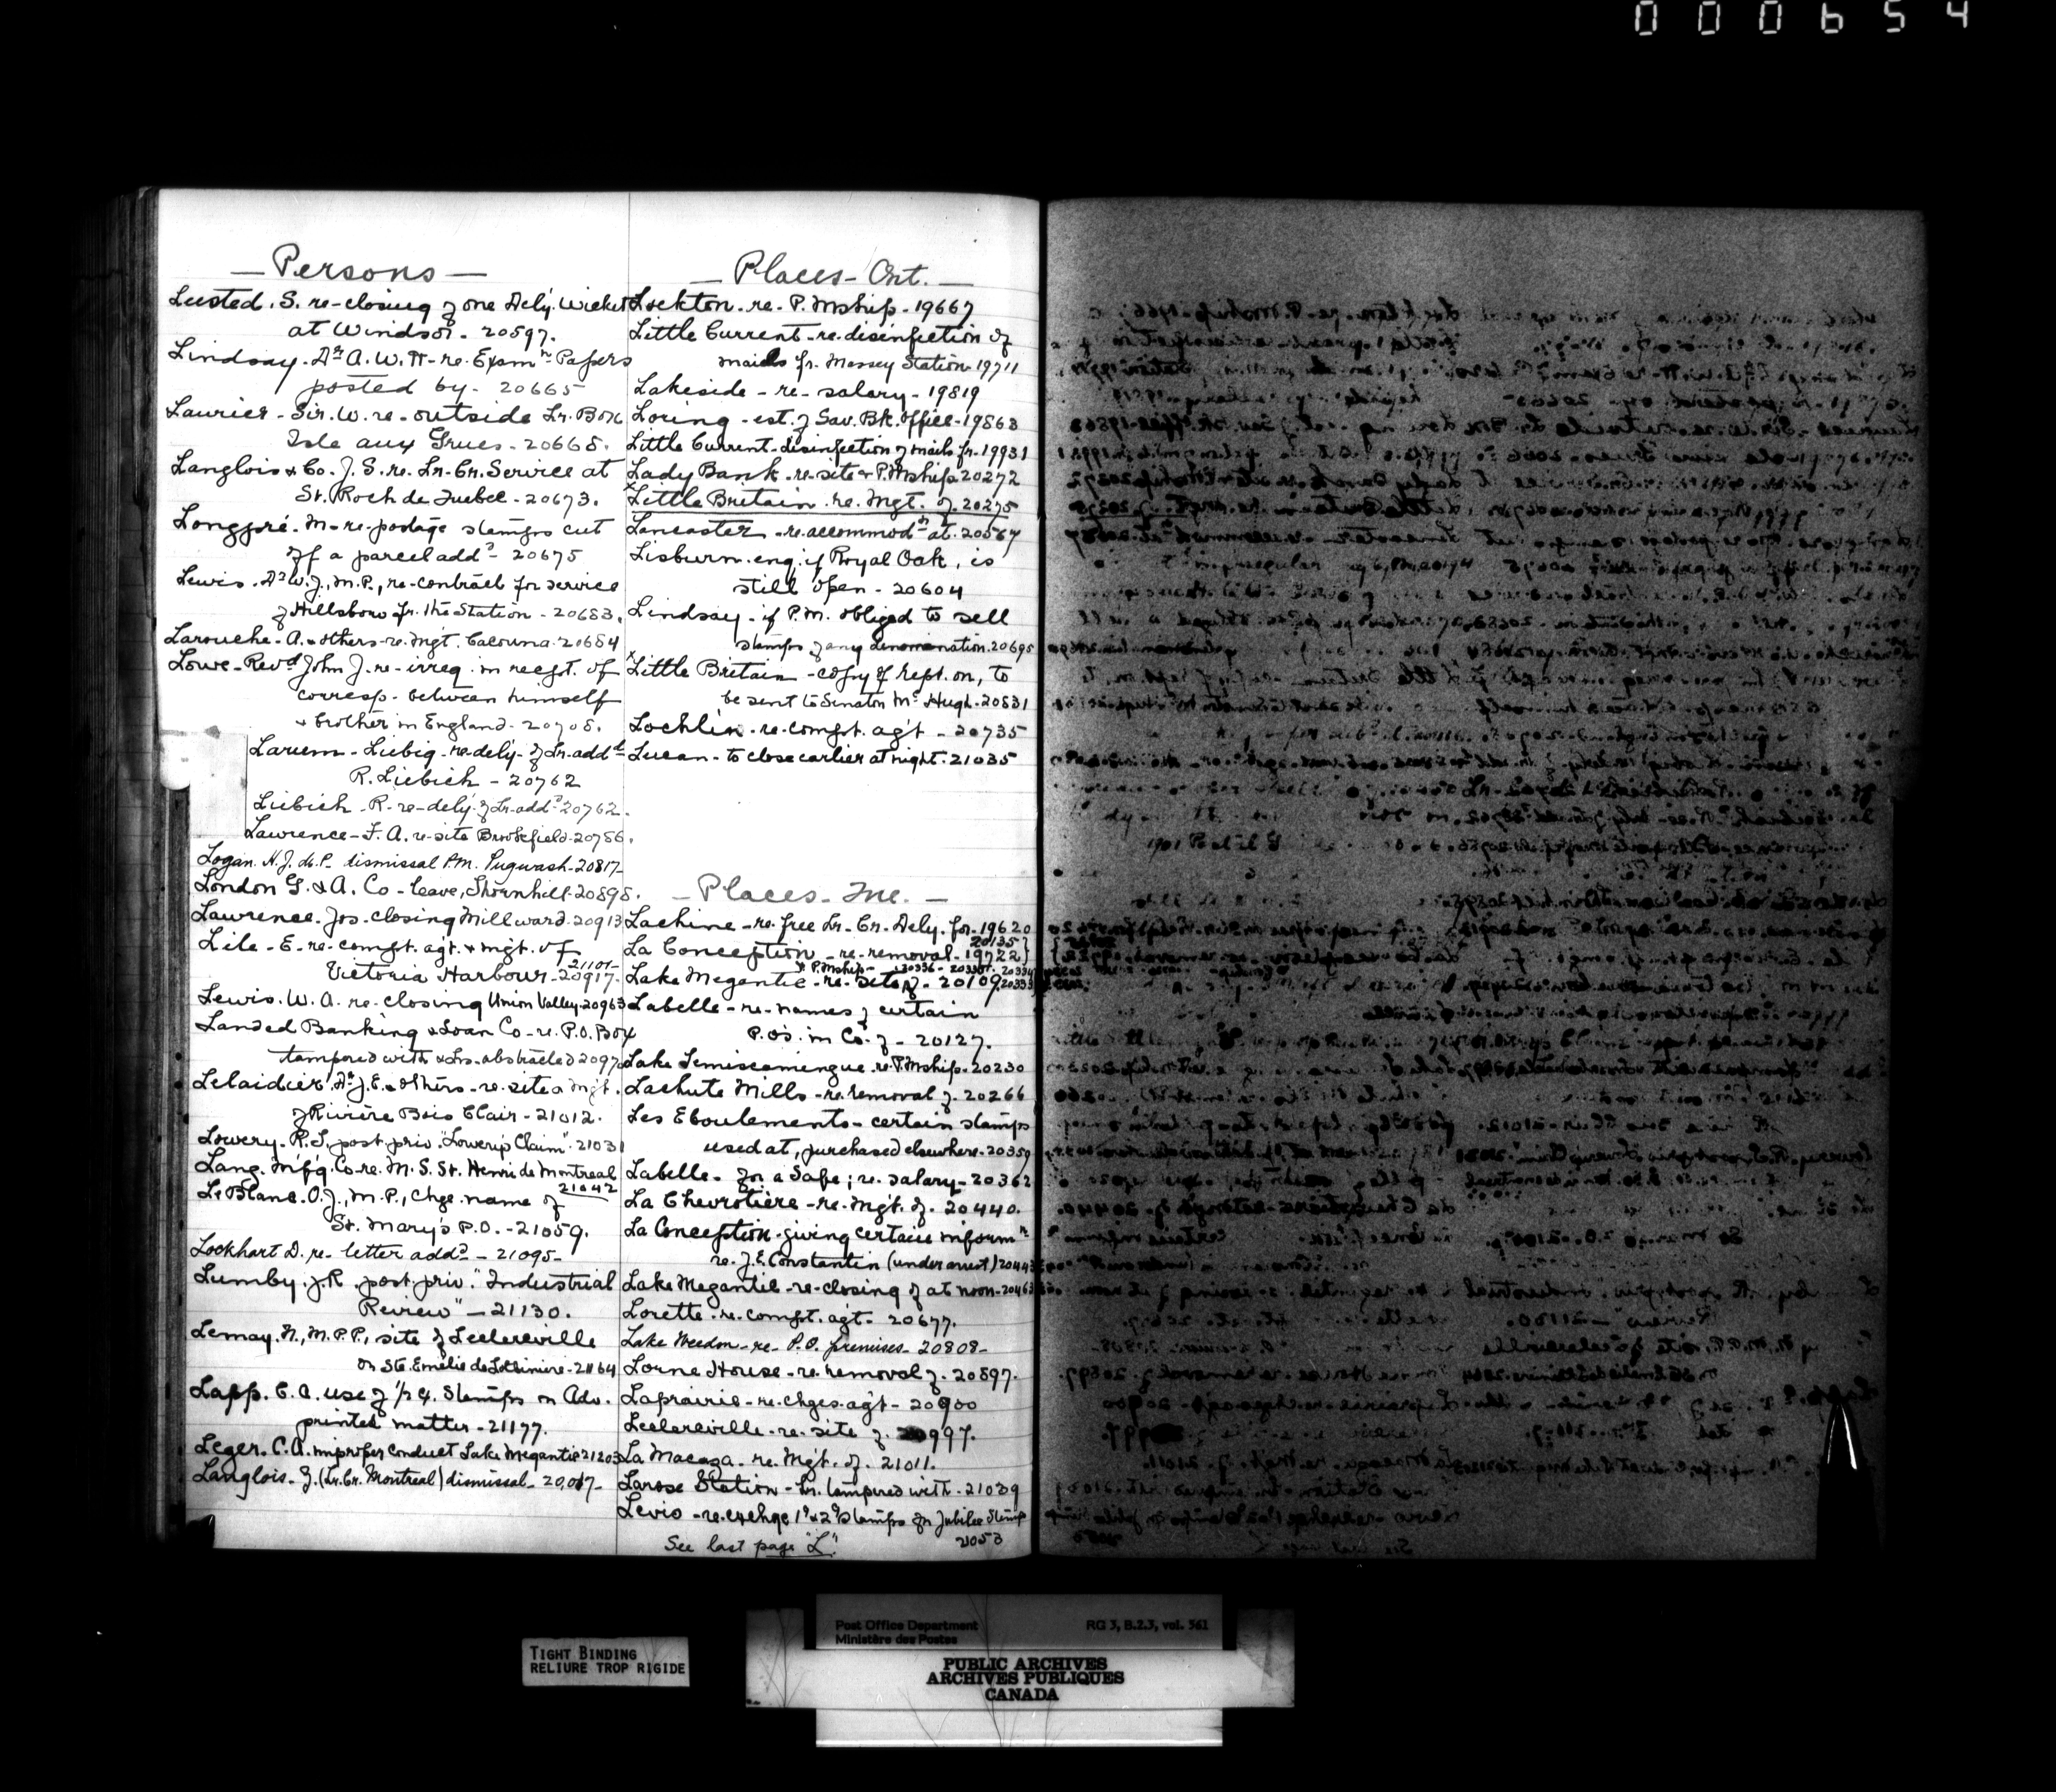 000654
— Persons —
Lusted. S. re-closing of one Dely. Wicket
at Windsor. - 20597.
Lindsay. Dr A. W. H- re- Examn Papers
posted by - 20665
Laurier - Sir. W. re- outside Lr. Box
Isle aux Grues - 20668.
Langlois & Co. J. S. re. Lr. Cr. Service at
St. Roch de Quebec - 20673.
Longpré. M- re- postage stamps cut
off a parcel addd - 20675
Lewis. Dr W. J., M.P., re-contract for service
of Hillsboro fr. the Station - 20683.
Larouche - A. & others - re. Mgt. Cacouna. 20684
Lowe - Revd John J. re- irreg. in recpt. of
corresp. between himself
& brother in England - 20708.
Larum - Liebig - re. dely - of Lr. addd
R. Liebich - 20762
Liebich. R- re- dely. of Lr. addd 20762.
Lawrence - F. A. re- site Brookfield. 20786.
Logan. H. J. M.P. dismissal P.M. Pugwash. 20817-
London G. & A. Co - leave, Thornhill. 20898.
Lawrence. Jos. closing Millward. 20913
Lile - E- re- compt. agt. & mgt. of
Victoria Harbour - 20917. 21101-
Lewis. W. A. re- closing Union Valley. 20963
Landed Banking & Loan Co- re. P.O. Box
tampered with & Lrs. abstracted 2097
Lelaidier. Dr J. E. & others - re. site & Mgt.
of Rivière Bois Clair - 21012.
Lowery - R. T. post. priv. "Lowery's Claim" - 21031
Lang. M'f'g. Co. re. M. S. St. Henri de Montreal
21042
LeBlanc. O. J., M.P., Chge. name of
St. Mary's P.O. - 21059.
Lockhart D. re- letter addd - 21095-
Lumby. J. R. post. priv. "Industrial
Review" - 21130.
Lemay. N., M.P.P., site of Leclercville
or Ste. Emélie de Lotbiniere - 21164
Lapp. E. A. use of 1/2 ¢. Stamps on Adv.
printed matter - 21177.
Leger. C. A. improper conduct Lake Megantic 21203
Langlois - J. (Lr. Cr. Montreal) dismissal - 20,017-
— Places - Ont. —
Lockton. re. P. Mship. - 19667
Little Current - re. disinfection of
mails fr. Massey Station 19711
Lakeside - re- salary - 19819
Loring - est. of Sav. Bk. office - 19863
Little Current - disinfection of mails fr - 19931
Lady Bank. re. site & P. Mship. 20272
x Little Britain. re. Mgt. of. 20275
Lancaster - re. accommodn at. 20567
Lisburn. enq. if Royal Oak, is
still open - 20604
Lindsay - if P.M. obliged to sell
stamps of any denomination. 20695
x Little Britain - copy of rept. on, to
be sent to Senator Mc Hugh. 20831
Lochlin - re. compt. agt - 20735
Lucan - to close earlier at night. 21035
— Places - Que. —
Lachine - re. free Lr. Cr. Dely. for - 19620
20135 }
La Conception - re. removal - 19722 }
& P. Mship - 20336 - 20330. 20334
Lake Megantic - re- site of. - 20109. 20333
Labelle - re- names of certain
P.O's. in Co. of - 20127.
Lake Temiscamingue. re. P. Mship. 20230
Lachute Mills - re. removal of. 20266
Les Eboulements - certain stamps
used at, purchased elsewhere - 20359
Labelle - for a Safe; re. salary - 20362
La Chevrotière - re. Mgt. of. 20440.
La Conception - giving certain informn
re. J. E. Constantin (under arrest) 20443
Lake Megantic - re- closing of at noon - 20463
Lorette. re. compt. agt. - 20677.
Lake Weedon - re- P.O. premises - 20808-
Lorne House - re. removal of. 20897.
Laprairie - re. chges. agt - 20900
Leclercville - re- site of. 20997.
La Macaza - re. Mgt. of. 21011.
Larose Station - Lr. tampered with - 21039
Levis - re. exchge 1¢ & 2¢ stamps for Jubilee Stamp
21053
See last page "L".
Post Office Department
Ministère des Postes
RG 3, B.2.3, vol. 561
TIGHT BINDING
RELIURE TROP RIGIDE
PUBLIC ARCHIVES
ARCHIVES PUBLIQUES
CANADA